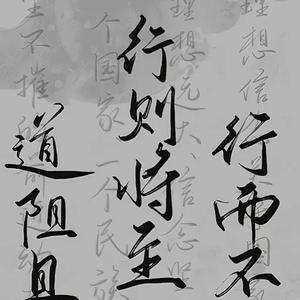 道阻且
行则将至
行而不
理想信
理想远大、信念坚
个国家、一个民族
不摧